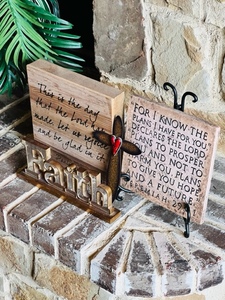 This is the day
that the Lord has
made, let us rejoice
and be glad in it
Faith
"FOR I KNOW THE
PLANS I HAVE FOR YOU,"
DECLARES THE LORD,
"PLANS TO PROSPER
YOU AND NOT TO
HARM YOU, PLANS
TO GIVE YOU HOPE
AND A FUTURE."
JEREMIAH 29:11